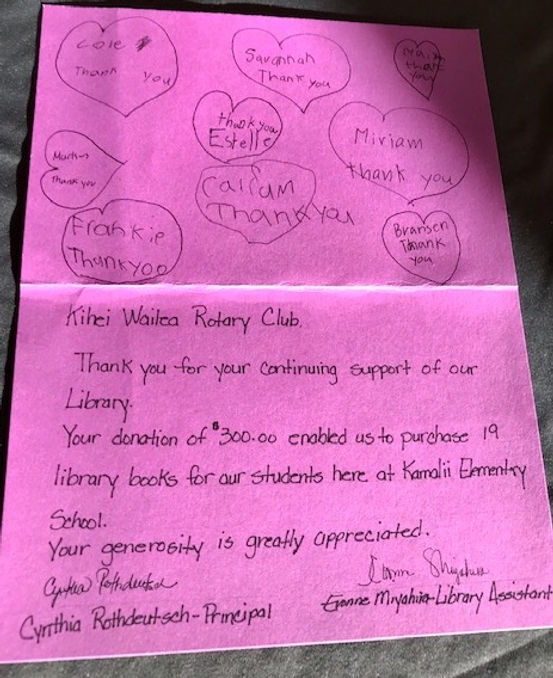 Cole
Thank you
Savannah
Thank you
thank you
Estelle
Miriam
thank you
Thank you
Callum
Thank you
Frankie
Thankyoo
Bransen
Thank
you
Kihei Wailea Rotary Club.
Thank you for your continuing support of our
Library.
Your donation of $300.00 enabled us to purchase 19
library books for our students here at Kamalii Elementry
School.
Your generosity is greatly appreciated.
Cynthia Rothdeutsch
Cynthia Rothdeutsch-Principal
Library Assistant